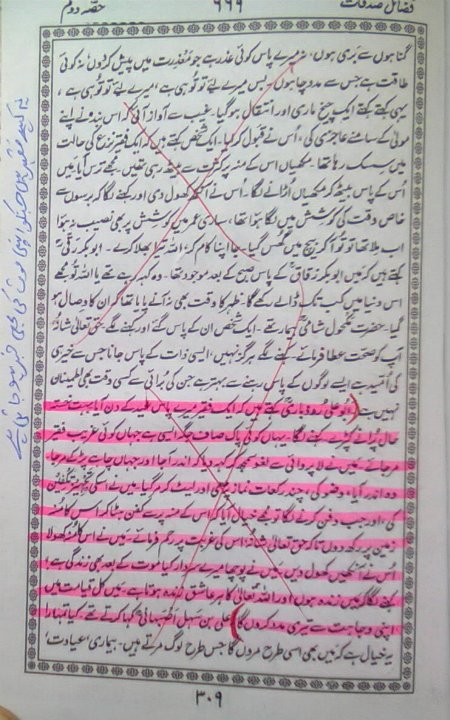 فضائل صدقات ۶۶۹ حصّہ دوم
گناہوں سے بَری ہوں، نہ میرے پاس کوئی عذر ہے جو معذرت میں پیش کروں، نہ کوئی
طاقت ہے جس سے مدد چاہوں، بس میرے لیے تو تُو ہی ہے، میرے لیے تو تُو ہی ہے،
یہی کہتے کہتے ایک چیخ ماری اور انتقال ہوگیا۔ غیب سے آواز آئی کہ اس بندہ نے اپنے
مولیٰ کے سامنے عاجزی کی، اُس نے قبول کرلیا۔ ایک شخص کہتے ہیں کہ ایک فقیر نزع کی حالت
میں سسک رہا تھا، مکھیاں اس کے منہ پر کثرت سے بیٹھ رہی تھیں۔ مجھے ترس آیا، میں
اُس کے پاس بیٹھ کر مکھیاں اُڑانے لگا۔ اُس نے آنکھ کھول دی اور کہنے لگا کہ برسوں سے
خاص وقت کی کوشش میں لگا ہوا تھا، ساری عمر میں کوشش پر بھی نصیب نہ ہوا
اب ملا تھا تو تُو آکر بیچ میں گھس گیا۔ جا اپنا کام کر، اللہ تیرا بھلا کرے۔ ابوبکر رقی
کہتے ہیں کہ میں ابوبکر زقاق کے پاس صبح کے بعد موجود تھا۔ وہ کہہ رہے تھے یا اللہ تُو مجھے
اس دنیا میں کب تک ڈالے رکھے گا۔ ظہر کا وقت بھی نہ آنے پایا تھا کہ ان کا وصال ہو
گیا۔ حضرت مکحول شامی بیمار تھے۔ ایک شخص ان کے پاس گئے اور کہنے لگے، حق تعالیٰ شانُہ
آپ کو صحت عطا فرمائے۔ کہنے لگے ہرگز نہیں، ایسی ذات کے پاس جانا جس سے خیر ہی
کی اُمید ہے ایسے لوگوں کے پاس رہنے سے بہتر ہے جن کی بُرائی سے کسی وقت بھی اطمینان
نہیں ہے (ابوعلی روذباری کہتے ہیں کہ ایک فقیر میرے پاس عید کے دن آیا، بہت خستہ
حال پرانے کپڑے، کہنے لگا۔ یہاں کوئی پاک صاف جگہ ایسی ہے جہاں کوئی غریب فقیر
مرجائے۔ میں نے لاپروائی سے لغو سمجھ کر کہہ دیا کہ اندر آجا اور جہاں چاہے پڑ کے مرجا۔
وہ اندر آیا، وضو کی، چند رکعات نماز پڑھی اور لیٹ کر مرگیا۔ میں نے اسکی تجہیز تکفین
کی، اور جب دفن کرنے لگا تو مجھے خیال آیا کہ اس کے منہ پر سے کفن ہٹاکر اس کا منہ
زمین پر رکھ دوں تاکہ حق تعالیٰ شانہ اس کی غربت پر رحم فرمائے۔ میں نے اس کا منہ کھولا
اُس نے آنکھیں کھول دیں۔ میں نے پوچھا میرے سردار کیا موت کے بعد بھی زندگی ہے؟
کہنے لگا کہ میں زندہ ہوں، اور اللہ تعالیٰ کا ہر عاشق زندہ ہوتا ہے۔ میں کل قیامت میں
اپنی وجاہت سے تیری مدد کروں گا) علی بن سہل اصبہانی کہا کرتے تھے کیا تمہارا
یہ خیال ہے کہ میں بھی اسی طرح مروں گا جس طرح لوگ مرتے ہیں۔ بیماری، عیادت،
۳۰۹